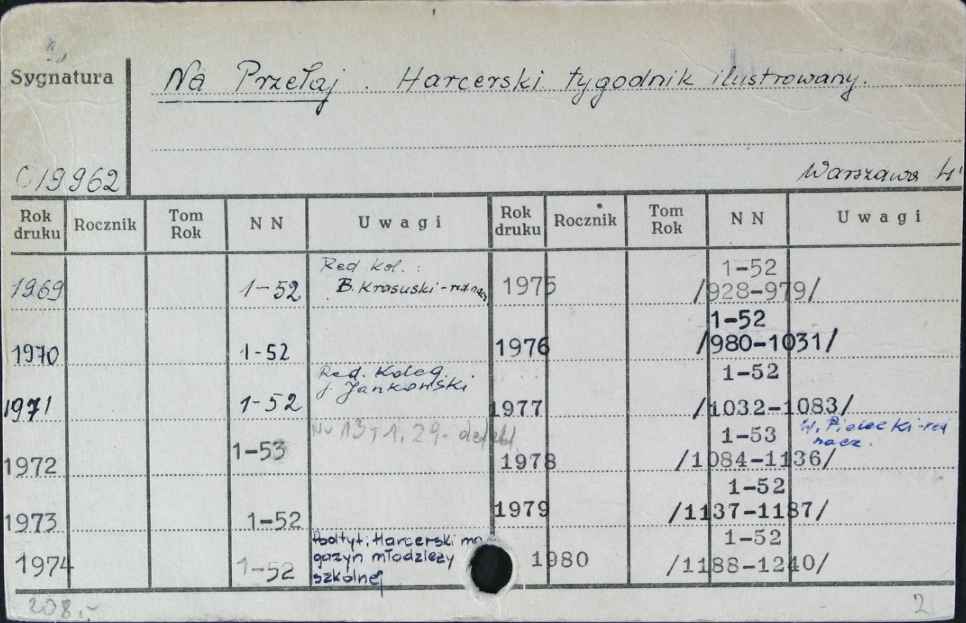 Sygnatura
Na Przełaj. Harcerski tygodnik ilustrowany.
C 19962
Warszawa 4°
Rok druku Rocznik Tom Rok N N Uwagi Rok druku Rocznik Tom Rok N N Uwagi
1969 1-52 Red kol. :
B. Krasuski - red nacz
1975 1-52
/928-979/
1970 1-52
1976 1-52
/980-1031/
1971 1-52 Red. Koleg.
J. Jankowski.
1977 1-52
/1032-1083/
1972 1-53 Nr 13 1, 29.
1978 1-53
/1084-1136/
W. Pielecki - red
nacz.
1973 1-52
1979 1-52
/1137-1187/
1974 1-52 Podtyt: Harcerski ma
gazyn młodzieży
szkolnej
1980 1-52
/1188-1240/
208.-
2